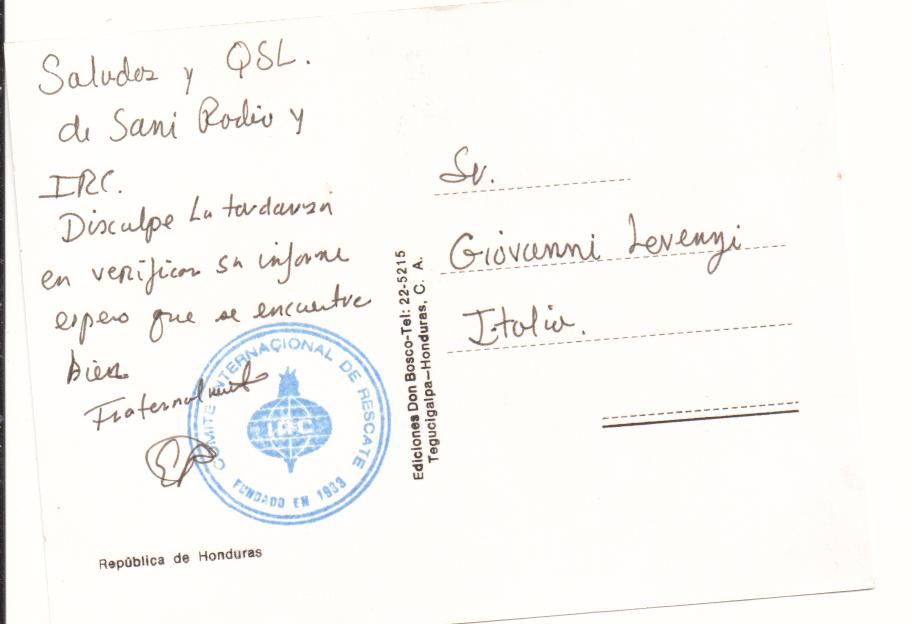 Saludos y QSL.
de Sani Radio y
IRC.
Disculpe La tardanza
en verificar su informe
espero que se encuentre
bien
Fraternalmente
COMITE INTERNACIONAL DE RESCATE
IRC
FUNDADO EN 1933
República de Honduras
Ediciones Don Bosco-Tel: 22-5215
Tegucigalpa-Honduras, C. A.
Sr.
Giovanni
Italia.